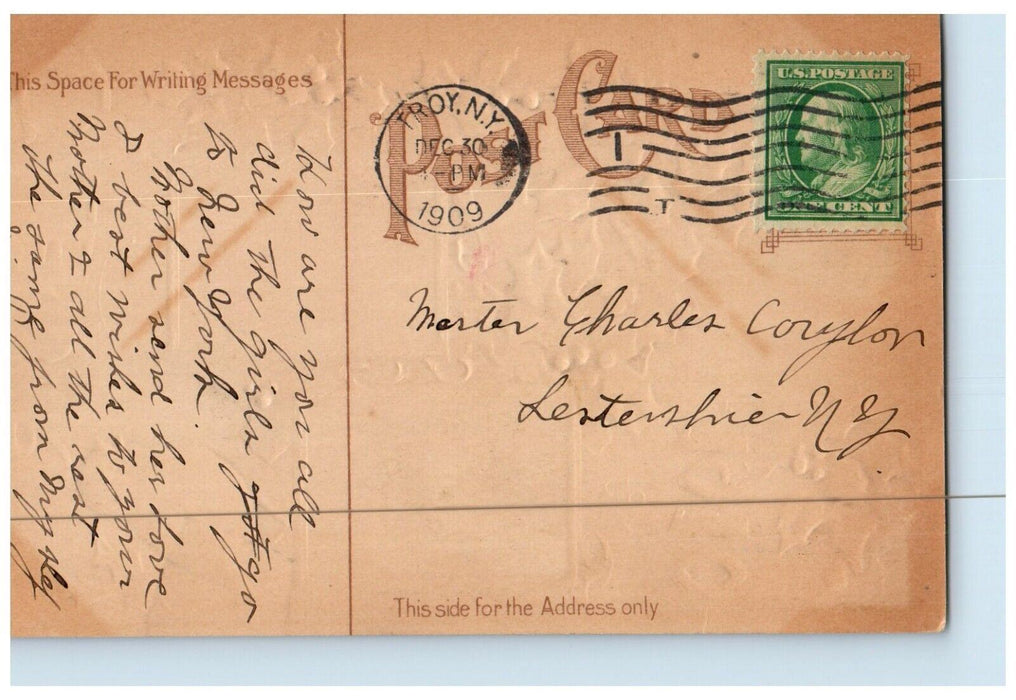 This Space For Writing Messages
POST CARD
TROY, N.Y.
DEC 30
-PM
1909
1
T
U.S. POSTAGE
ONE CENT
How are you all
did the girls go
to New York.
Mother send her love
& best wishes to your
Mother & all the rest
the same from Myself
Master Charles Corylon
Lestershire N.Y.
This side for the Address only